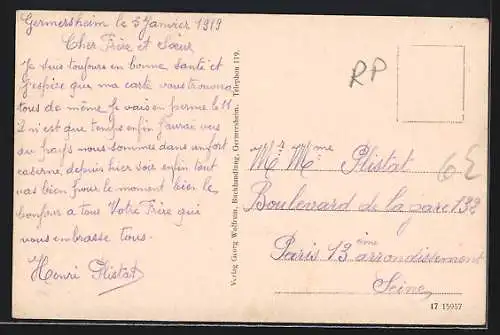 Germersheim le 5 Janvier 1919
Cher Frère et Sœur
Je suis toujours en bonne santé et
j'espère que ma carte vous trouvera
tous de même je vais en perme le 11
il n'est que temps enfin j'aurai vu
du pays nous sommes dans un fort
caserne depuis hier soir enfin tout
vas bien pour le moment bien le
bonjour a tous Votre Frère qui
vous embrasse tous.
Henri Plistat
Verlag Georg Wolfrum, Buchhandlung, Germersheim. Telephon 119.
RP
Mr Mme Plistat
6E
Boulevard de la gare 132
Paris 13 ème arrondissement
Seine
17 15957